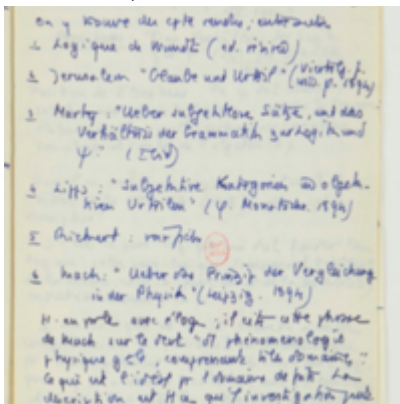 on y trouve des cpte rendus, entre autres
1. Logique de Wundt (ed. révisée)
2 Jerusalem "Glaube und Urteil" (Viertelj. f.
p. 1894)
3 Marty: "Ueber subjektlose Sätze, und das
Verhältnis der Grammatik zur Logik und
ψ."
4 Lipps: "Subjektive Kategorien in objek-
tiven Urteilen" (φ. Monatshefte. 1894)
5 Rickert:
6 Mach: "Ueber das Prinzip der Vergleichung
in der Physik" (Leipzig. 1894)
H. en parle avec éloge; il cite cette phrase
de Mach sur le "d'1 phénoménologie
physique gle, comprenant ts les domaines"
ce qui est l'idéal pr 1 domaine de faits. La
description est ce que l'investigation peut